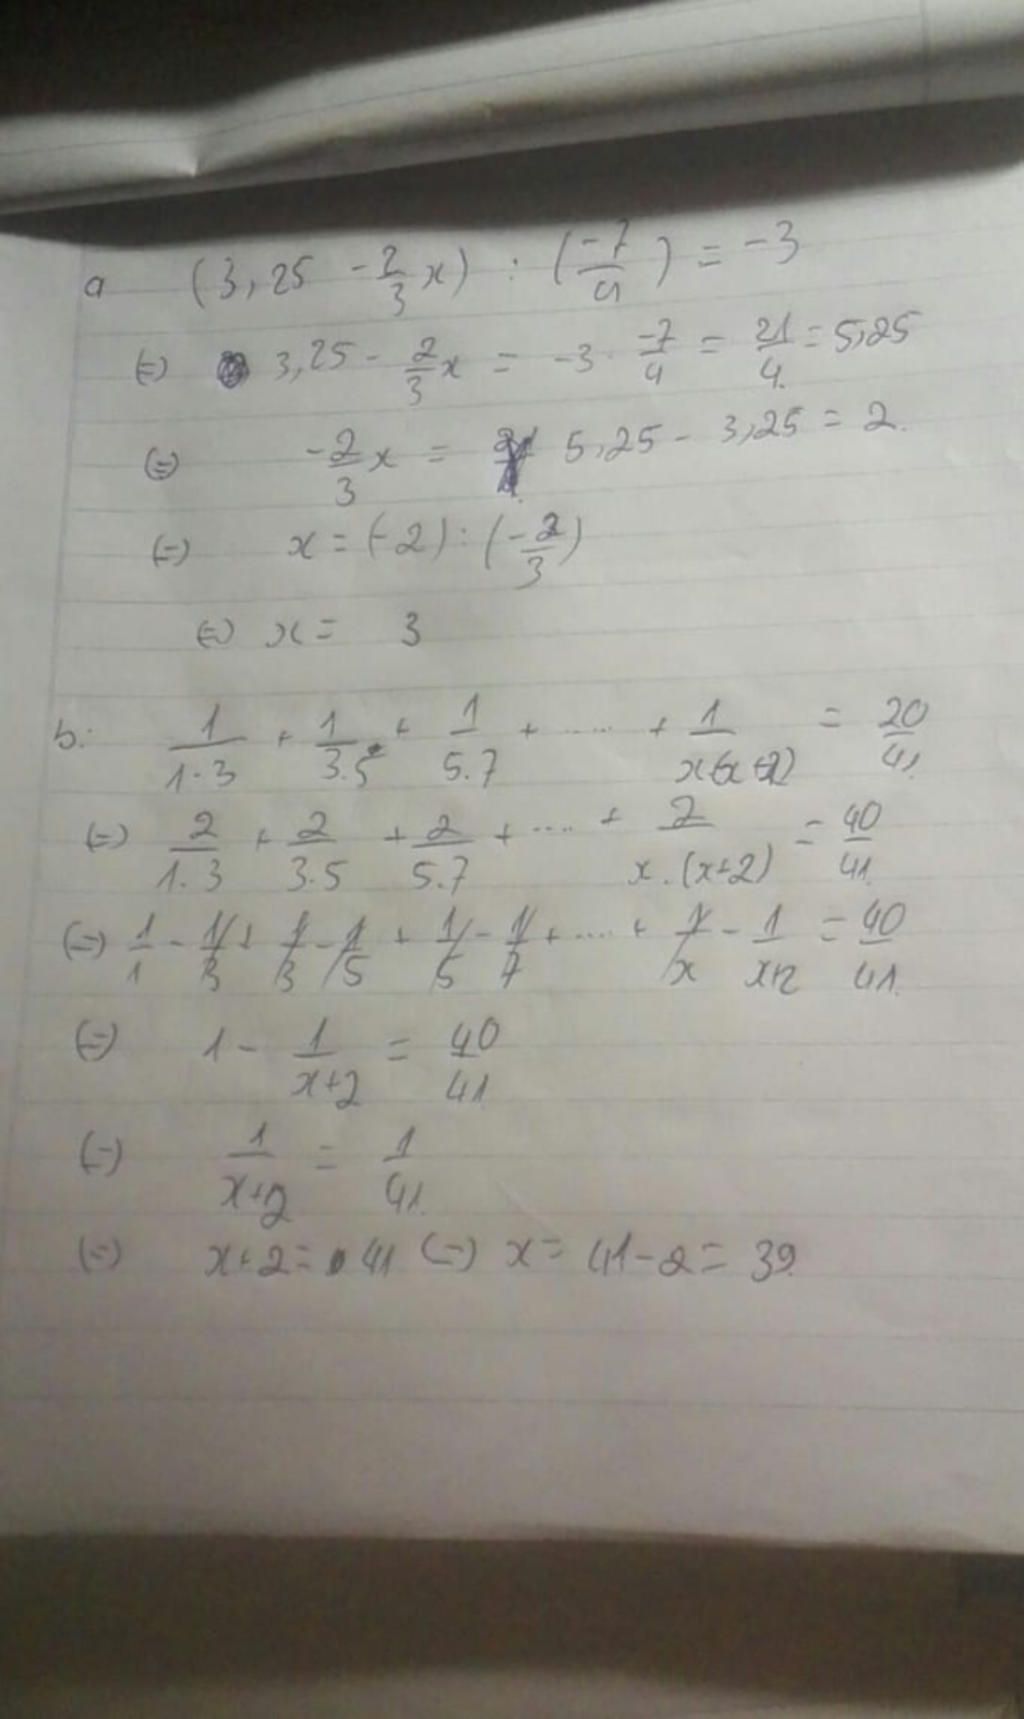 a (3,25 - 2/3 x) : (-7/4) = -3
(=) 3,25 - 2/3 x = -3 · -7/4 = 21/4 = 5,25
(=) -2/3 x = 5,25 - 3,25 = 2.
(=) x = (-2) : (-2/3)
(=) x = 3
b. 1/1·3 + 1/3.5 + 1/5.7 + ..... + 1/x(x+2) = 20/41
(=) 2/1.3 + 2/3.5 + 2/5.7 + .... + 2/x.(x+2) = 40/41
(=) 1/1 - 1/3 + 1/3 - 1/5 + 1/5 - 1/7 + .... + 1/x - 1/x+2 = 40/41
(=) 1 - 1/x+2 = 40/41
(=) 1/x+2 = 1/41
(=) x+2 = 41 (=) x = 41-2 = 39